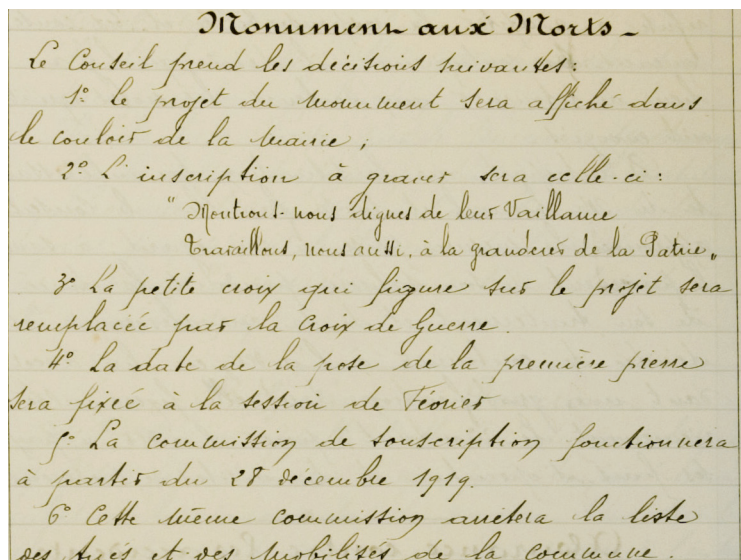 Monument aux Morts -
Le Conseil prend les décisions suivantes :
1º le projet du monument sera affiché dans
le couloir de la Mairie ;
2º L'inscription à graver sera celle-ci :
"Montrons-nous dignes de leur Vaillance
Travaillons, nous aussi, à la grandeur de la Patrie"
3º La petite croix qui figure sur le projet sera
remplacée par la Croix de Guerre.
4º La date de la pose de la première pierre
sera fixée à la session de Février
5º La commission de souscription fonctionnera
à partir du 28 décembre 1919.
6º Cette même commission arrêtera la liste
des tués et des mobilisés de la commune.